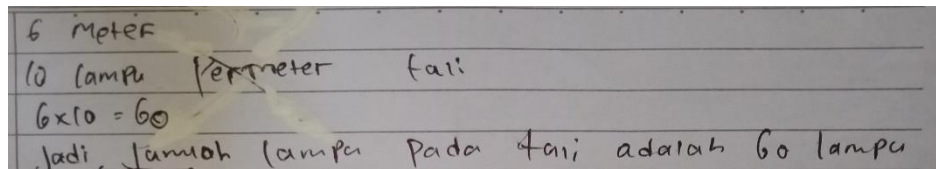 6 Meter
10 lampu Permeter tali
6x10 = 60
Jadi, Jamlah lampu Pada tali adalah 60 lampu